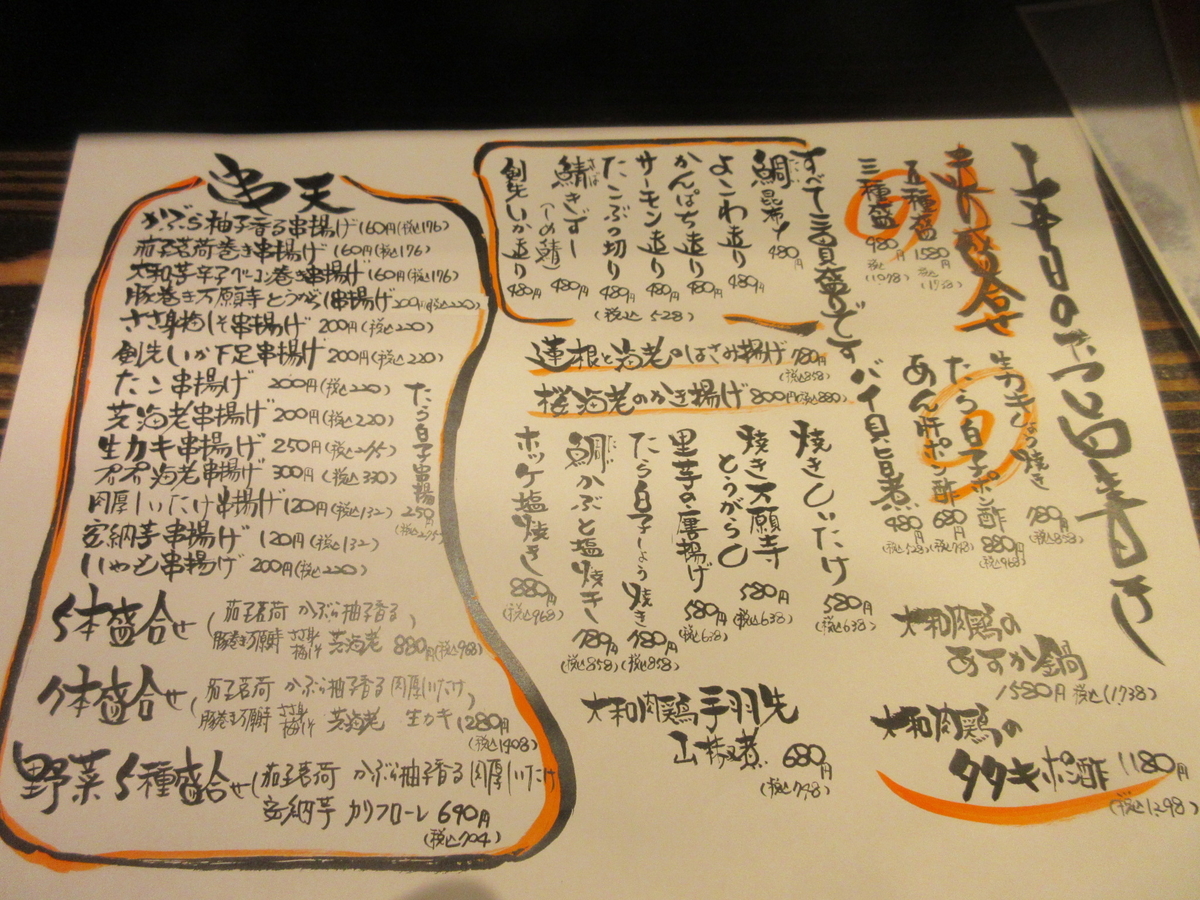 十一月十四日のおつな書き
造り盛合せ
五種盛 1580円 税込(1738)
三種盛 980円 税込(1078)
すべて三貫盛りです
鯛昆布〆 480円
よこわ造り 480円
かんぱち造り 480円
サーモン造り 480円
たこぶつ切り 480円
鯖きずし(しめ鯖) 480円
剣先いか造り 480円
(税込528)
生カキしょう焼き 780円(税込858)
たら白子ポン酢 880円(税込968)
あん肝ポン酢 680円(税込748)
バイ貝旨煮 480円(税込528)
蓮根と海老のはさみ揚げ 780円(税込858)
桜海老のかき揚げ 800円(税込880)
焼きしいたけ 580円(税込638)
焼き万願寺とうがらし 580円(税込638)
里芋の唐揚げ 580円(税込638)
たら白子しょう焼き 780円(税込858)
鯛かぶと塩焼き 780円(税込858)
ホッケ塩焼き 880円(税込968)
大和肉鶏の
あすか鍋
1580円 税込(1738)
大和肉鶏の
タタキポン酢 1180円
(税込1298)
大和肉鶏手羽先
山椒煮 680円
(税込748)
串天
かぶら柚子香る串揚げ 160円(税込176)
茄子茗荷巻き串揚げ 160円(税込176)
大和芋辛子ベーコン巻き串揚げ 160円(税込176)
豚巻き万願寺とうがらし串揚げ 200円(税込220)
ささ身梅しそ串揚げ 200円(税込220)
剣先いか下足串揚げ 200円(税込220)
たこ串揚げ 200円(税込220)
芝海老串揚げ 200円(税込220)
生カキ串揚げ 250円(税込275)
海老串揚げ 300円(税込330)
肉厚しいたけ串揚げ 120円(税込132)
安納芋串揚げ 120円(税込132)
串揚げ 200円(税込220)
たら白子串揚 250円(税込275)
5本盛合せ(茄子茗荷 かぶら柚子香る
豚巻き万願寺 ささ身梅しそ 芝海老) 880円(税込968)
7本盛合せ(茄子茗荷 かぶら柚子香る 肉厚しいたけ
豚巻き万願寺 ささ身梅しそ 芝海老 生カキ 1280円
(税込1408)
野菜5種盛合せ(茄子茗荷 かぶら柚子香る 肉厚しいたけ
安納芋 カリフローレ 640円
(税込704)